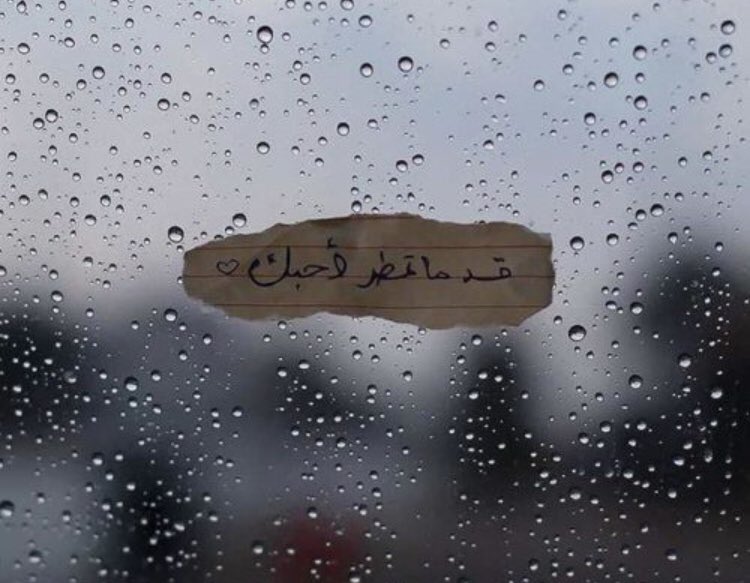 قد ما تمطر لأحبك ♡